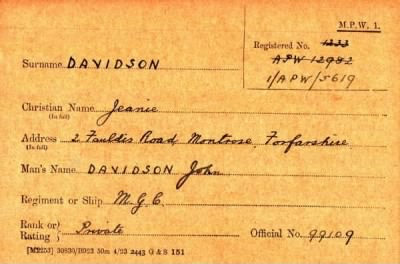 M.P.W. 1.
Registered No. 1233
APW 12982
1/APW/5619
Surname DAVIDSON
Christian Name Jeanie
(In full)
Address 2 Faulds Road, Montrose, Forfarshire
(In full)
Man's Name DAVIDSON John
Regiment or Ship M.G.C.
Rank or Rating } Private Official No. 99109
[M2253) 30830/B923 50m 4/23 2443 G & S 151